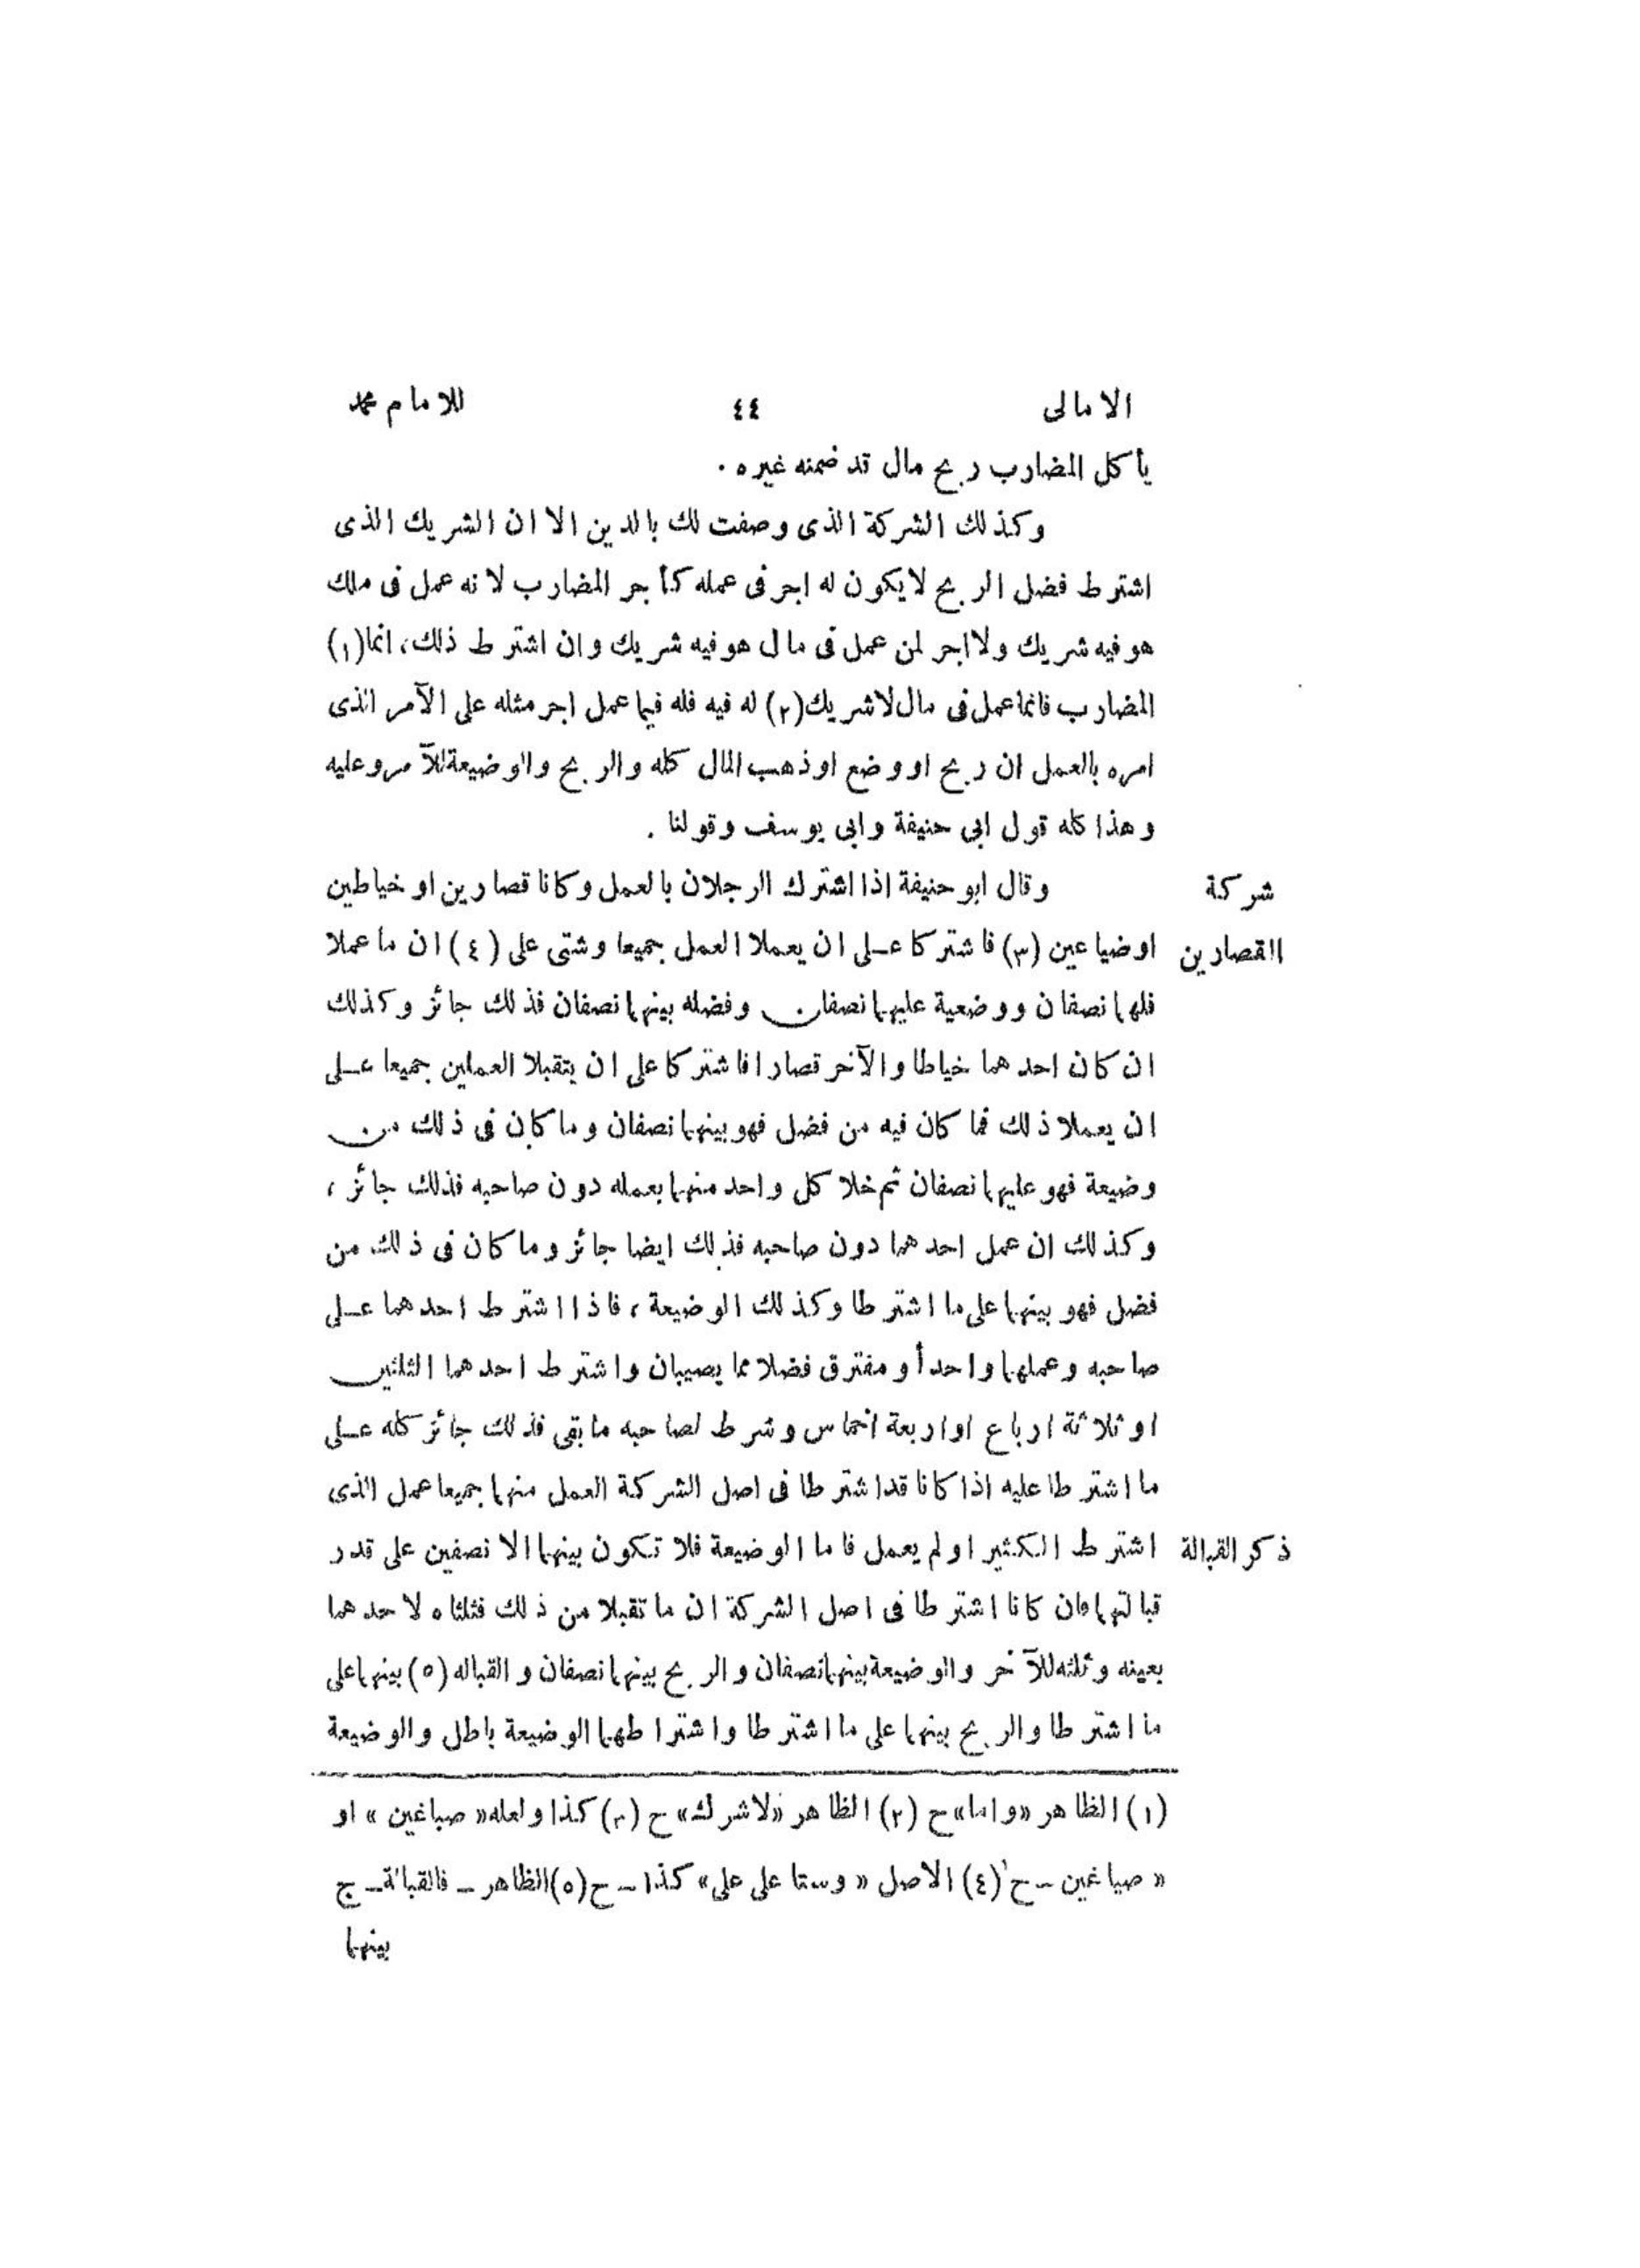 الامالى ٤٤ للامام محمد
يأكل المضارب ربح مال قد ضمنه غيره ٠
وكذلك الشركة الذى وصفت لك بالدين الا ان الشريك الذى
اشترط فضل الربح لايكون له اجر فى عمله كأجر المضارب لانه عمل فى ملك
هو فيه شريك ولا اجر لمن عمل فى مال هو فيه شريك وان اشترط ذلك، انما(١)
المضارب فانما عمل فى مال لاشريك(٢) له فيه فله فيما عمل اجر مثله على الآمر الذى
امره بالعمل ان ربح او وضع او ذهب المال كله والربح والوضيعة للآمر وعليه
وهذا كله قول ابى حنيفة وابى يوسف وقولنا .
شركة وقال ابو حنيفة اذا اشترك الرجلان بالعمل وكانا قصارين او خياطين
القصارين اوضياعين (٣) فاشتركا عــلى ان يعملا العمل جميعا وشتى على (٤) ان ما عملا
فلهما نصفان ووضعية عليهما نصفان وفضله بينهما نصفان فذلك جائز وكذلك
ان كان احدهما خياطا والآخر قصارا فاشتركا على ان يتقبلا العملين جميعا عــلى
ان يعملا ذلك فما كان فيه من فضل فهو بينهما نصفان وما كان فى ذلك من
وضيعة فهو عليهما نصفان ثم خلا كل واحد منهما بعمله دون صاحبه فذلك جائز ،
وكذلك ان عمل احدهما دون صاحبه فذلك ايضا جائز وما كان فى ذلك من
فضل فهو بينهما على ما اشترطا وكذلك الوضيعة ، فاذا اشترط احدهما عــلى
صاحبه وعملهما واحدأ و مفترق فضلا مما يصيبان واشترط احدهما الثلثين
او ثلاثة ارباع او اربعة اخماس وشرط لصاحبه ما بقى فذلك جائز كله عــلى
ما اشترطا عليه اذا كانا قد اشترطا فى اصل الشركة العمل منهما جميعا عمل الذى
ذكر القبالة اشترط الكثير او لم يعمل فاما الوضيعة فلا تكون بينهما الا نصفين على قدر
قبالتهما فان كانا اشترطا فى اصل الشركة ان ما تقبلا من ذلك فثلثاه لاحدهما
بعينه وثلثه للآخر والوضيعة بينهما نصفان والربح بينهما نصفان و القباله (٥) بينهما على
ما اشترطا والربح بينهما على ما اشترطا واشتراطهما الوضيعة باطل والوضيعة
(١) الظاهر «واما» ح (٢) الظاهر «لاشرك» ح (٣) كذا ولعله « صباغين » او
« صياغين – ح (٤) الاصل « وستا على على» كذا – ح (٥) الظاهر – فالقبالة – ح
بينهما